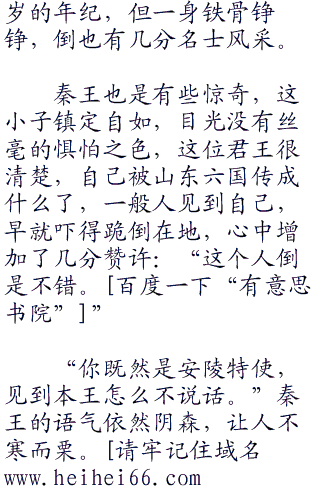 岁的年纪，但一身铁骨铮
铮，倒也有几分名士风采。
秦王也是有些惊奇，这
小子镇定自如，目光没有丝
毫的惧怕之色，这位君王很
清楚，自己被山东六国传成
什么了，一般人见到自己，
早就吓得跪倒在地，心中增
加了几分赞许：“这个人倒
是不错。[百度一下“有意思
书院”]”
“你既然是安陵特使，
见到本王怎么不说话。”秦
王的语气依然阴森，让人不
寒而栗。[请牢记住域名
www.heihei66.com